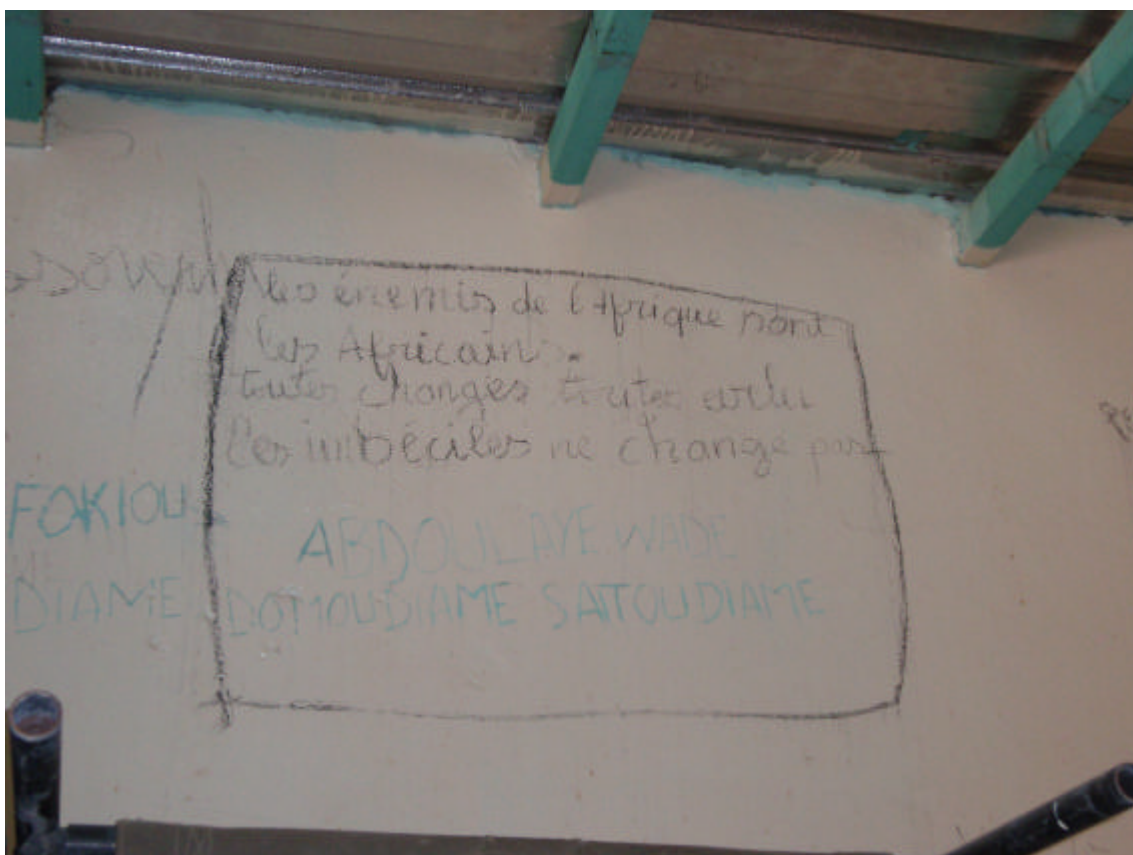 les énemis de l'Afrique sont
les Africains.
toutes changes toutes
les imbéciles ne change pas
FOKIOU
ABDOULAYE WADE
DIAME DOMOUDIAME SAITOUDIAME